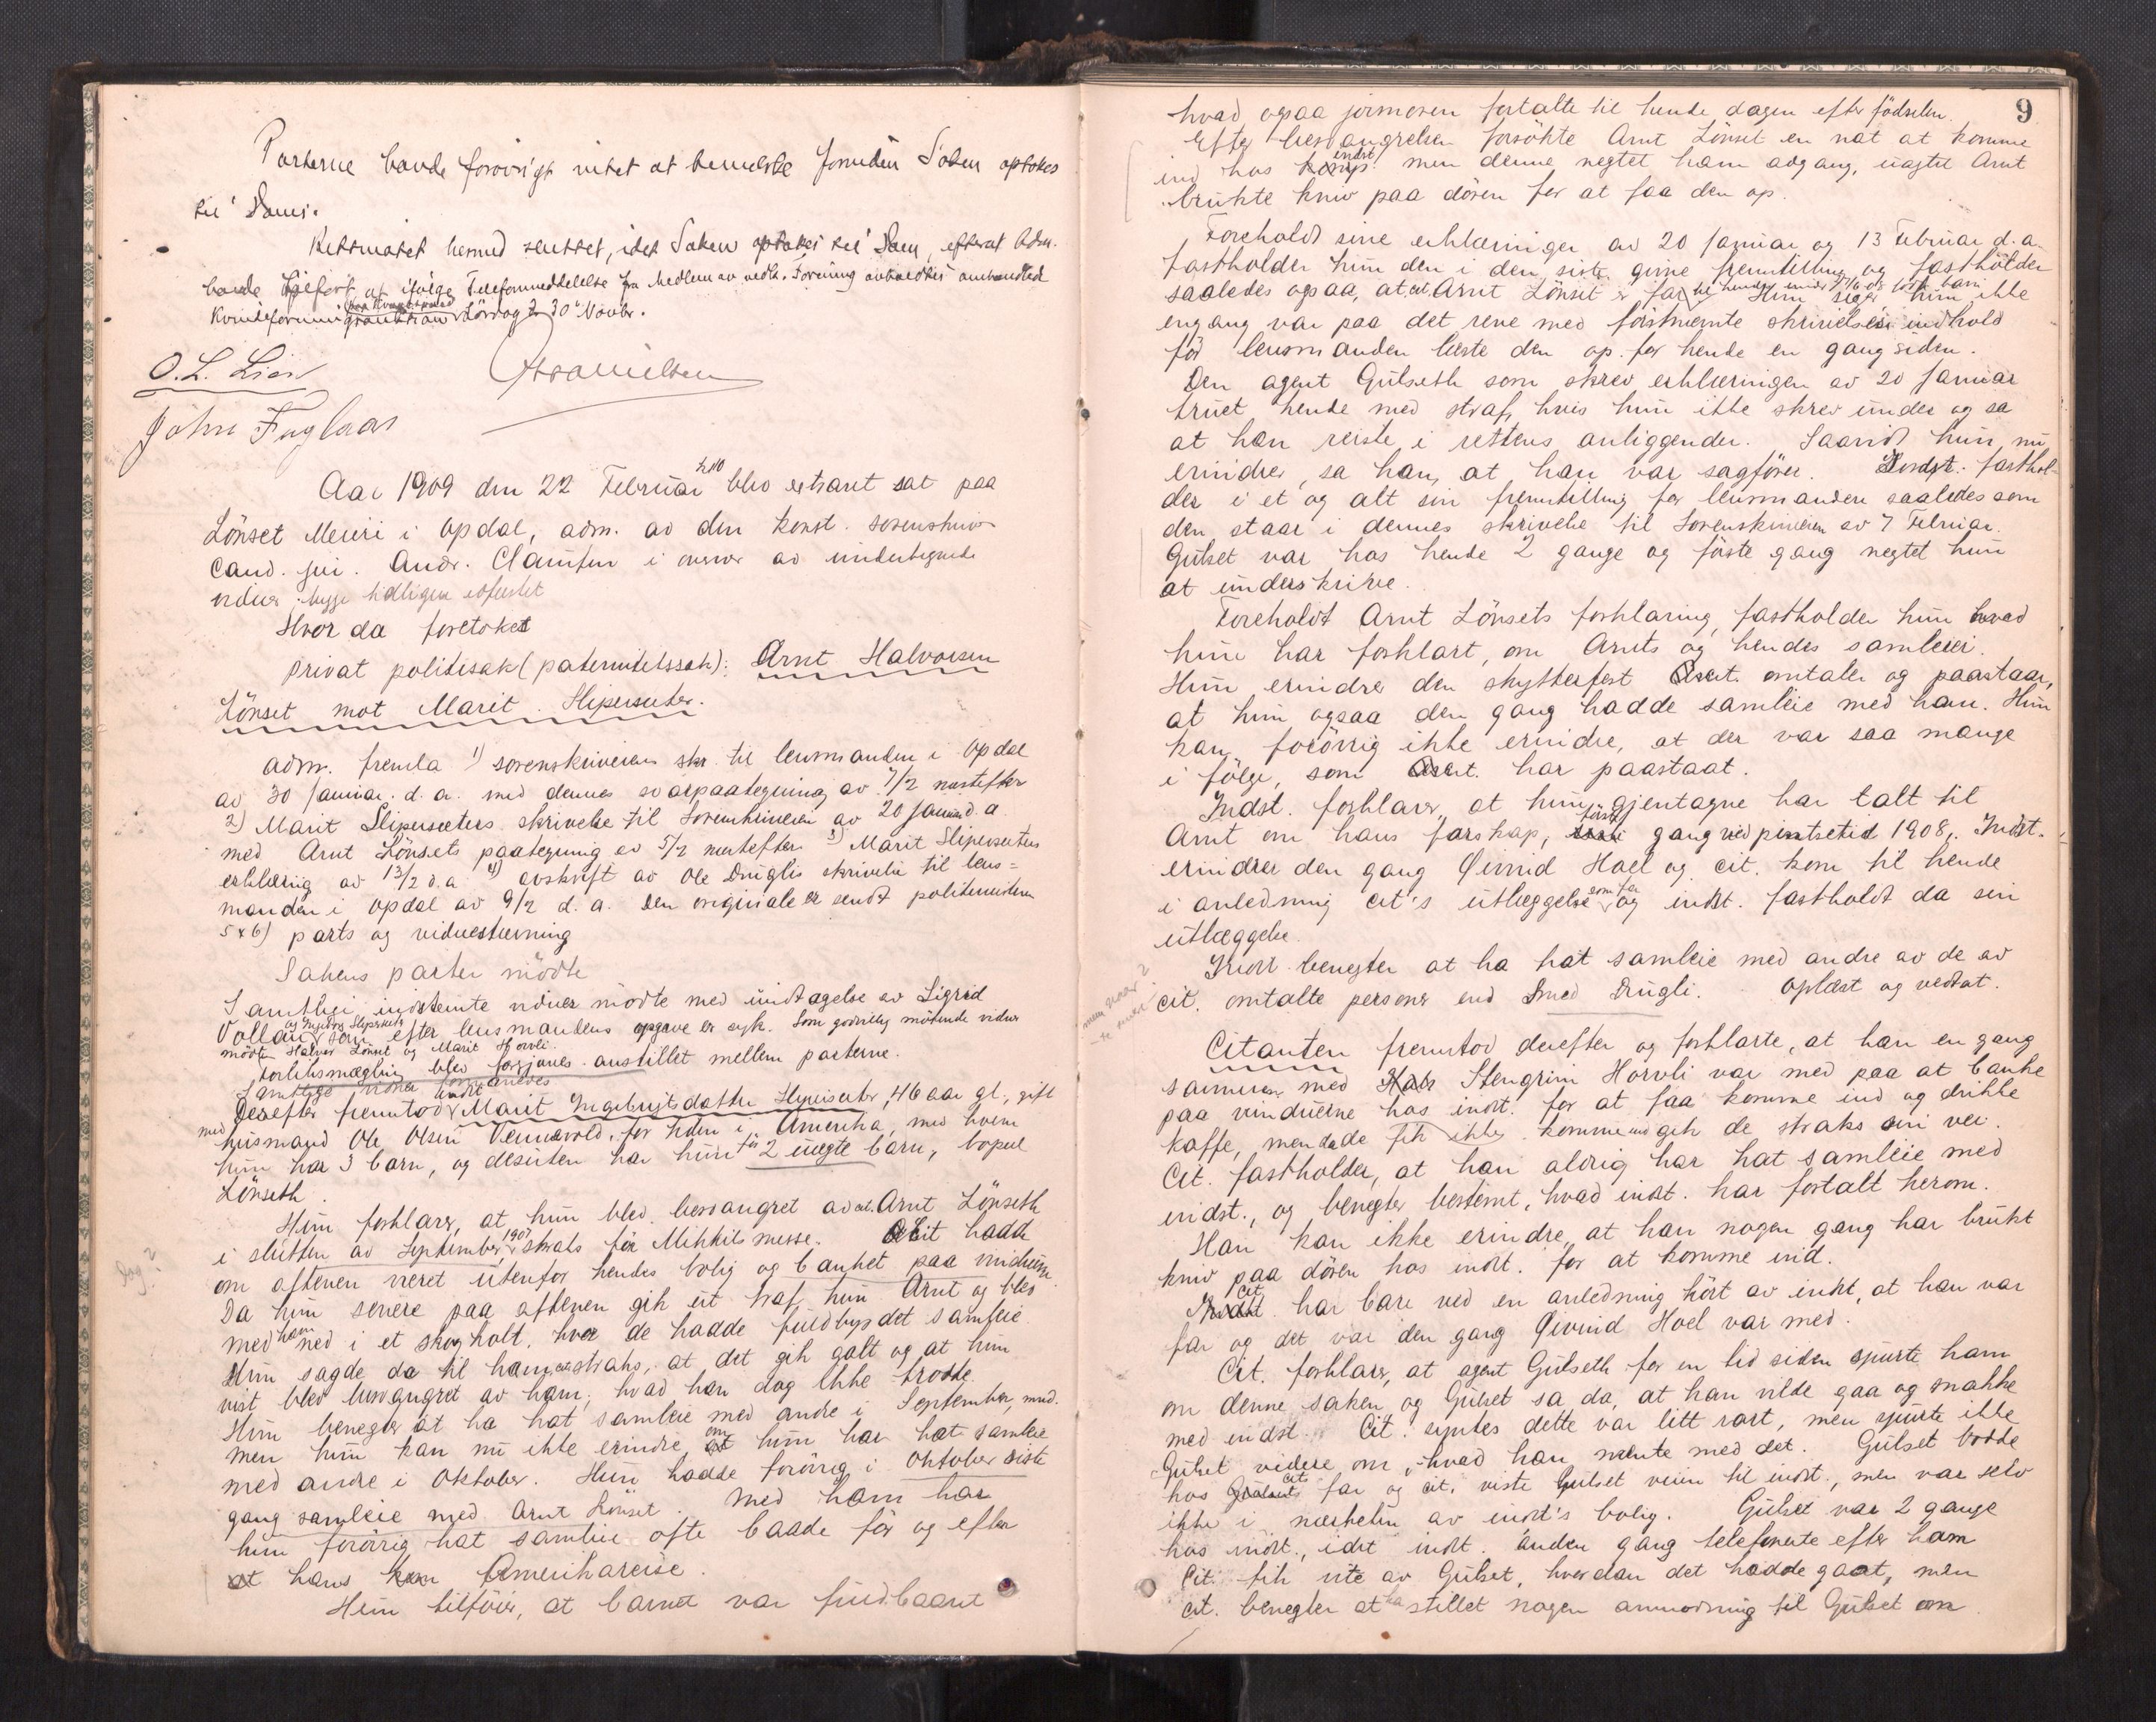 Parterne havde forøvrigt intet at bemerke forinden Saken optokes
til Doms.
Retsmøtet hermed sluttet, idet Saken optokes til Dom, efterat Adm.
havde tilført at ifølge Telefonmeddelelse fra Medlem av nedk. Forening avholdtes
Kvindeforening Lördag 30 Novbr.
O. L. Lien
John Fuglaas
Aar 1909 den 22 Februar kl 10 blev extraret sat paa
Lönset Meieri i Opdal, adm. av den konst. sorenskriver
Cand. jur. Andr. Claussen i overvær av undertegnede
vidner begge tidligere edfæstet
Hvor da foretokes
privat politisak (paternitetssak): Arnt Halvorsen
Lönset mot Marit Slipersæter.
Adm. fremla 1) sorenskriverens skr. til lensmanden i Opdal
av 30 Januar d. a. med dennes svarpaategning av 7/2 næstefter
2) Marit Slipersæters skrivelse til Sorenskriveren av 20 Januar d. a
med Arnt Lönsets paategning av 5/2 næstefter 3) Marit Slipersæters
erklæring av 13/2 d. a. 4) avskrift av Ole Druglis skrivelse til lens=
manden i Opdal av 9/2 d. a. Den originale er sendt politimesteren
5 & 6) parts og vidnestævning
Sakens parter mödte
Samtlige indstevnte vidner mödte med undtagelse av Sigrid
Vollan og Ingebor Slipersæter som efter lensmandens opgave er syk. Som godvillig mötende vidner
mödte Halvor Lönset og Marit Horvli.
Forliksmægling blev forgjæves anstillet mellem parterne.
Samtlige vidner formanedes
Derefter fremstod indst. Marit Ingebrigtsdatter Slipersæter, 46 aar gl., gift
med husmand Ole Olsen Vennevold, for tiden i Amerika, med hvem
hun har 3 barn, og desuten har hun för 2 uægte barn, bopæl
Lönseth.
Hun forklarer, at hun blev besvangret av cit. Arnt Lönseth
i slutten av September 1907 straks för Mikkelsmesse. Cit hadde
om aftenen været utenfor hendes bolig og banket paa vinduerne
Dog?
Da hun senere paa aftenen gik ut traf hun Arnt og blev
med ham ned i et skogholt, hvor de hadde fuldbyrdet samleie.
Hun sagde da til ham straks, at det gik galt og at hun
vist blev besvangret av ham, hvad han dog ikke trodde.
Hun benegter at ha hat samleie med andre i September, mnd.
men hun kan nu ikke erindre, om hun har hat samleie
med andre i Oktober. Hun hadde forövrig i Oktober siste
gang samleie med Arnt Lönset. Med ham har
hun forövrig hat samleie ofte baade för og efter
hans Amerikareise.
Hun tilföier, at barnet var fuldbaaret
9
hvad ogsaa jormoren fortalte til hende dagen efter födselen.
Efter besvangrelsen forsökte Arnt Lönset en nat at komme
ind hos indst. men denne negtet ham adgang, uagtet Arnt
brukte kniv paa dören for at faa den op.
Foreholdt sine erklæringer av 20 Januar og 13 Februar d. a.
fastholder hun den i den siste givne fremstilling og fastholder
saaledes ogsaa, at cit. Arnt Lönset er far til hendes barn. Hun siger hun ikke
engang var paa det rene med förstnævnte skrivelses indhold
för lensmanden læste den op for hende en gang siden.
Den agent Gulseth som skrev erklæringen av 20 Januar
truet hende med straf, hvis hun ikke skrev under og sa
at han reiste i rettens anliggender. Saavidt hun nu
erindrer, sa han, at han var sagförer. Indst. fasthol-
der i et og alt sin fremstilling for lensmanden saaledes som
den staar i dennes skrivelse til Sorenskriveren av 7 Februar.
Gulset var hos hende 2 gange og förste gang negtet hun
at underskrive.
Foreholdt Arnt Lönsets forklaring, fastholder hun hvad
hun har forklart, om Arnts og hendes samleier.
Hun erindrer den skytterfest Cit. omtaler og paastaar,
at hun ogsaa den gang hadde samleie med ham. Hun
kan forövrig ikke erindre, at der var saa mange
i fölge, som Cit. har paastaat.
Indst. forklarer, at hun gjentagne har talt til
Arnt om hans farskap, förste gang ved pintsetid 1908. Indst.
erindrer den gang Øivind Hoel og cit. kom til hende
i anledning cit's utlæggelse som far og indst. fastholdt da sin
utlæggelse.
Indst. benegter at ha hat samleie med andre av de av
cit. omtalte personer end Smed Drugli. Oplæst og vedtat.
Citanten fremstod derefter og forklarte, at han en gang
sammen med Stengrim Horvli var med paa at banke
paa vinduerne hos indst. for at faa komme ind og drikke
kaffe, men da de fik ikke komme ind gik de straks sin vei.
Cit. fastholder, at han aldrig har hat samleie med
indst., og benegter bestemt, hvad indst. har fortalt herom.
Han kan ikke erindre, at han nogen gang har brukt
kniv paa dören hos indst. for at komme ind.
Cit. har bare ved en anledning hört av indst, at han var
far og det var den gang Øivind Hoel var med.
Cit. forklarer, at agent Gulseth for en tid siden spurte ham
om denne saken og Gulset sa da, at han vilde gaa og snakke
med indst. Cit. syntes dette var litt rart, men spurte ikke
Gulset videre om, hvad han mente med det. Gulset bodde
hos cits far og cit. viste Gulset veien til indst., men var selv
ikke i nærheten av indst's bolig. Gulset var 2 gange
hos indst., idet indst. anden gang telefonerte efter ham
Cit. fik vite av Gulset, hvordan det hadde gaaet, men
cit. benegter at ha stillet nogen anmodning til Gulset om